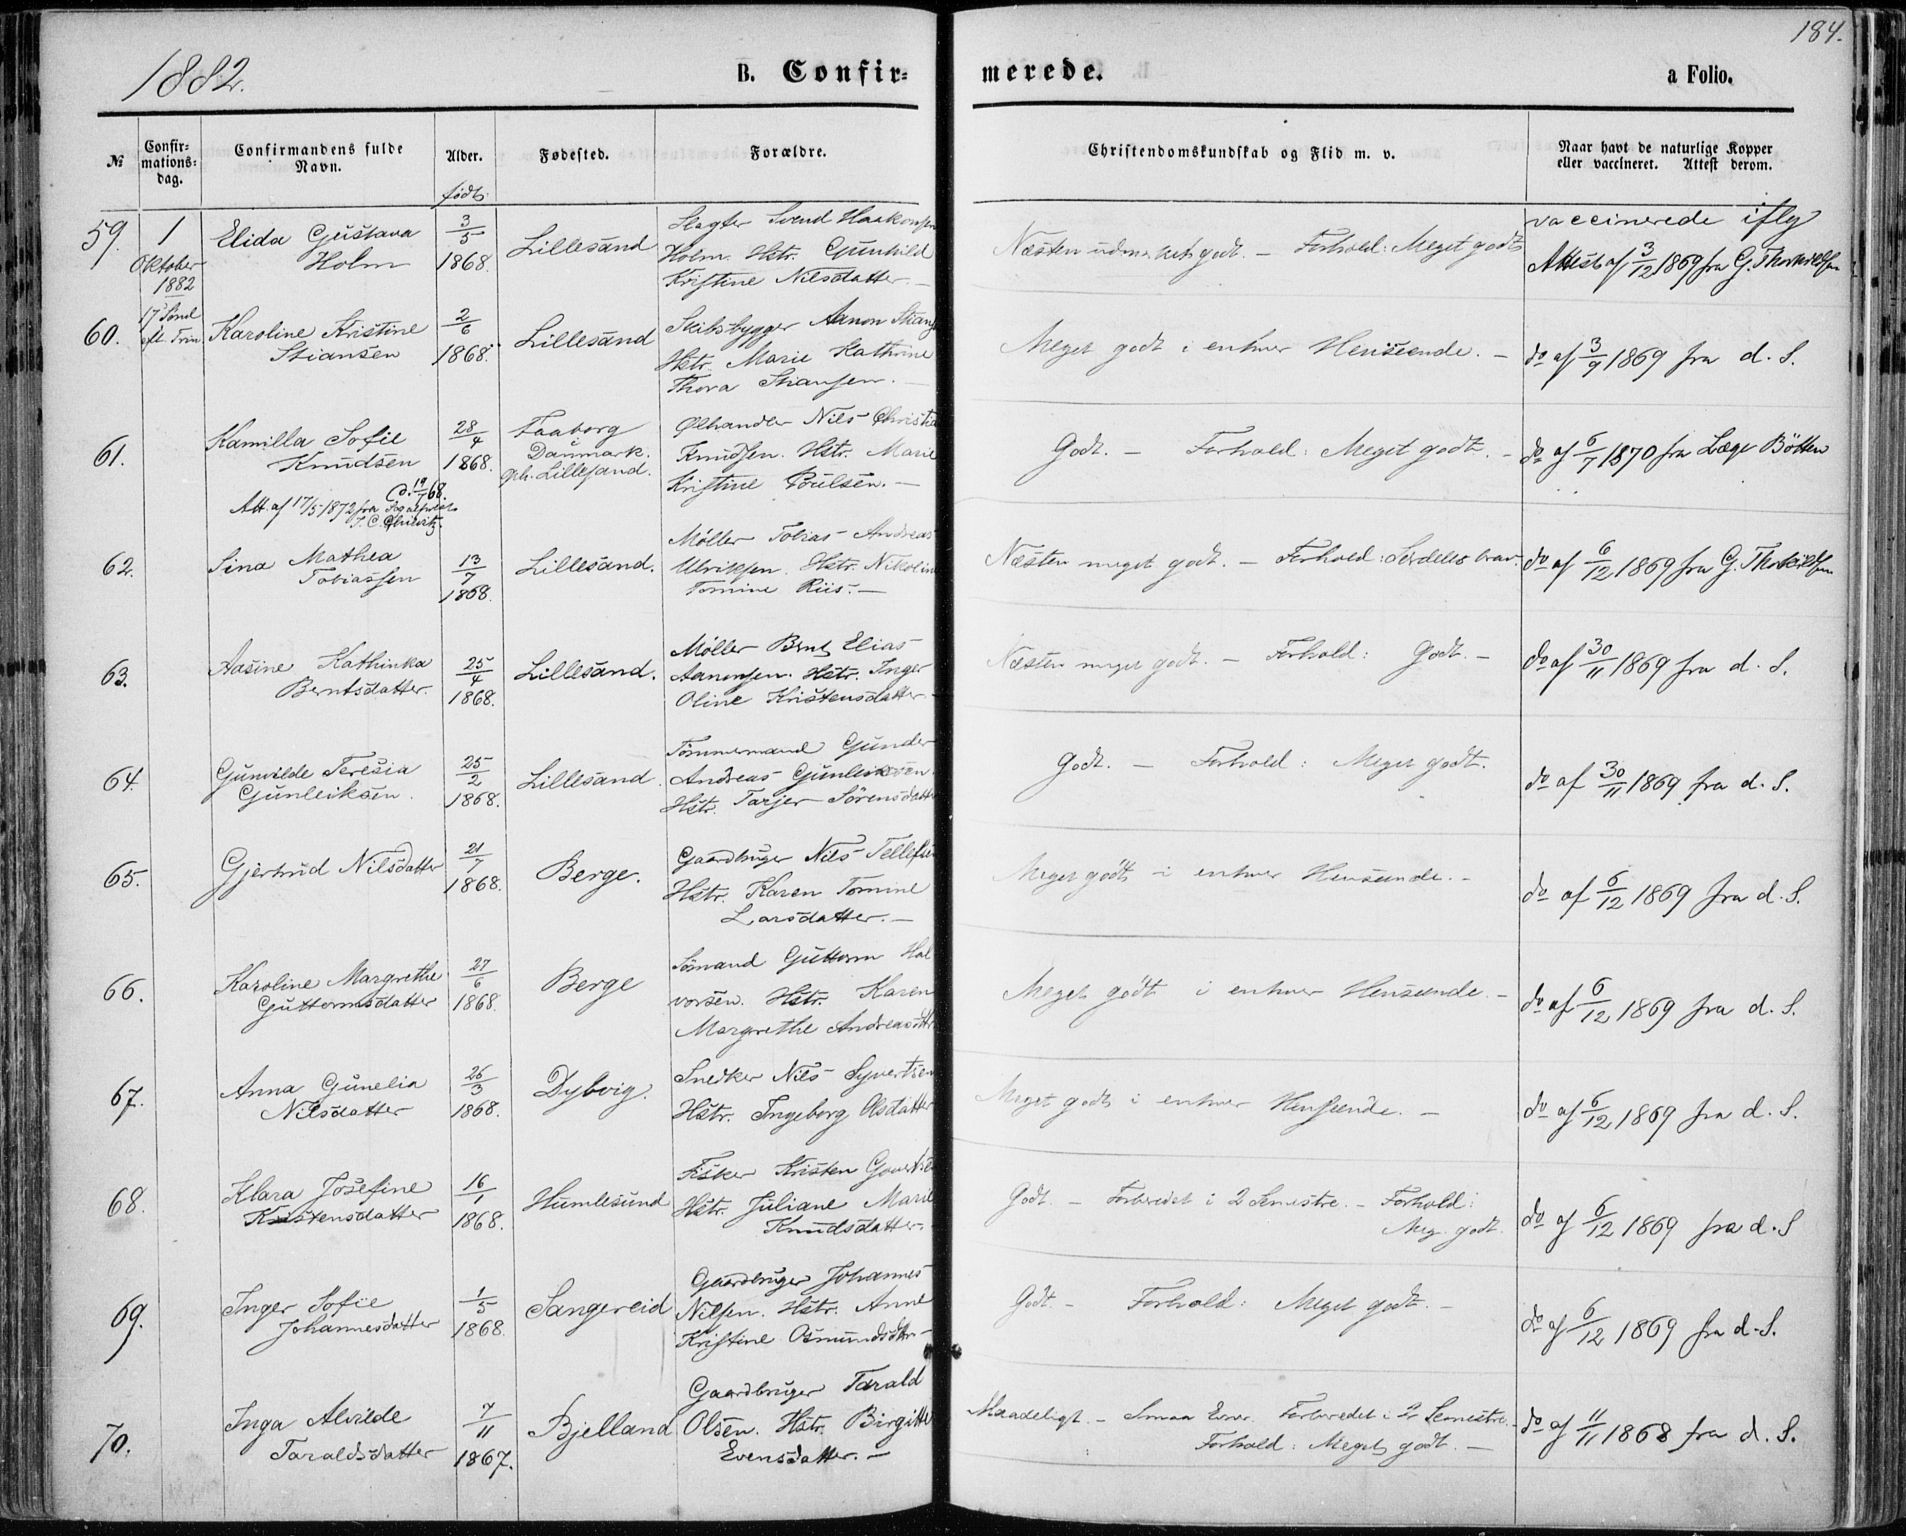 184.
1882.
B. Confir-
merede.
a Folio.
No
Confir-
mations-
dag.
Confirmandens fulde
Navn.
Alder.
Fødested.
Forældre.
Christendomskundskab og Flid m. v.
Naar havt de naturlige Kopper
eller vaccineret. Attest derom.
født:
59.
1
Oktober
1882
17 Sønd
eft. Trin
Elida Gustava
Holm
3/5
1868.
Lillesand
Slagter Svend Haakonsen
Holm. Hstr. Gunhild
Kristine Nilsdatter. —
Næsten udmerket godt. — Forhold: Meget godt
vaccinerede iflg
Attest af 3/12 1869 fra G. Thorkildsen
60.
Karoline Kristine
Stiansen
2/6
1868.
Lillesand
Skibsbygger Aanon Stians
Hstr. Marie Kathrine
Thora Stiansen. —
Meget godt i enhver Henseende. —
do af 3/9 1869 fra d. S.
61.
Kamilla Sofie
Knudsen
28/4
1868.
D. 19/7 68.
Att. af 17/5 1872 fra Sognepræst
Faaborg
i
Danmark.
oph. Lillesand.
Ølhandler Nils Christia
Knudsen. Hstr. Marie
Kristine Poulsen. —
Godt. — Forhold: Meget godt. —
do af 6/7 1870 fra Læge Bötten
62.
Sina Mathea
Tobiassen
13/7
1868.
Lillesand.
Møller Tobias Andreas
Ulriksen. Hstr. Nikoline
Tomine Riis. —
Næsten meget godt. — Forhold: Særdeles brav.
do af 6/12 1869 fra G. Thorkildsen
63.
Aasine Kathinka
Berntsdatter.
25/4
1868.
Lillesand.
Møller Bernt Elias
Aanonsen. Hstr. Inger
Oline Kristensdatter. —
Næsten meget godt. — Forhold: Godt. —
do af 30/11 1869 fra d. S.
64.
Gunvilde Teresia
Gunleiksen.
25/2
1868.
Lillesand.
Tømmermand Gunder
Andreas Gunleiksen.
Hstr. Tarjer Sörensdatte
Godt. — Forhold: Meget godt.
do af 30/11 1869 fra d. S.
65.
Gjertrud Nilsdatter
21/7
1868.
Berge.
Gaardbruger Nils Tellefse
Hstr. Karen Tomine
Larsdatter. —
Meget godt i enhver Henseende. —
do af 6/12 1869 fra d. S.
66.
Karoline Margrethe
Guttormsdatter
27/6
1868.
Berge
Sømand Guttorm Hal
vorsen. Hstr. Karen
Margrethe Andreasdttr
Meget godt i enhver Henseende. —
do af 6/12 1869 fra d. S.
67.
Anna Gunelia
Nilsdatter
26/3
1868.
Dybvig.
Snedker Nils Syvertsen
Hstr. Ingeborg Olsdatter
Meget godt i enhver Henseende. —
do af 6/12 1869 fra d. S.
68.
Klara Josefine
Kristensdatter
16/1
1868.
Humlesund
Fisker Kristen Govertse
Hstr. Juliane Marie
Knudsdatter. —
Godt. — Forberedet i 2 Semestre. — Forhold:
Meg. godt.
do af 6/12 1869 fra d. S
69.
Inger Sofie
Johannesdatter
1/5
1868.
Sangereid
Gaardbruger Johannes
Nilsen. Hstr. Anne
Kristine Osmundsdtr —
Godt. — Forhold: Meget godt. —
do af 6/12 1869 fra d. S.
70.
Inga Alvilde
Taraldsdatter
7/11
1867.
Bjelland
Gaardbruger Tarald
Olsen. Hstr. Birgitte
Evensdatter. —
Maadeligt. — Smaa Evner. Forberedet i 2 Semestre. —
Forhold: Meget godt. —
do af 11/11 1868 fra d. S.